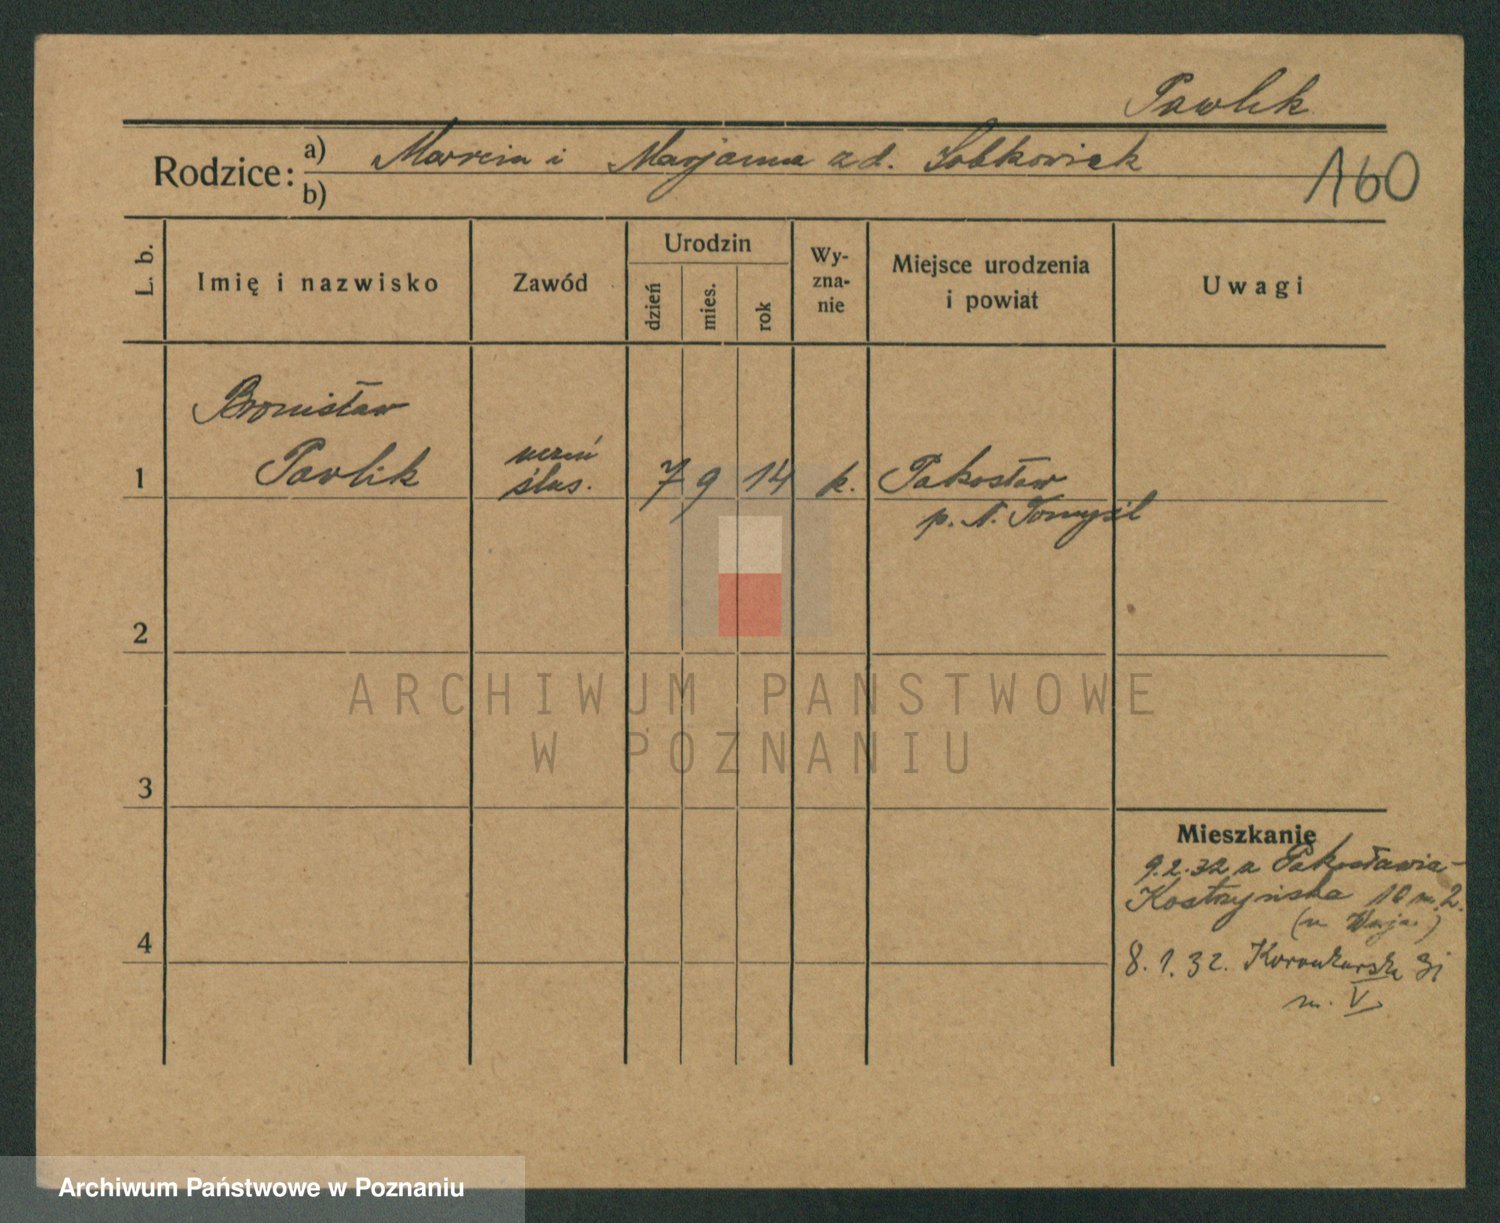 Pawlik
Rodzice: a) Marcin i Marjanna z d. Sobkowiak
160
b)
L. b. Imię i nazwisko Zawód Urodzin dzień mies. rok Wy-zna-nie Miejsce urodzenia i powiat Uwagi
Bronisław
1 Pawlik uczeń ślus. 7 9 14 k. Pakosław
p. N. Tomyśl
2
ARCHIWUM PAŃSTWOWE
W POZNANIU
3
Mieszkanie
9.2.32 z Pakosławia -
Kostrzyńska 10 m. 2.
4
8.1.32.
m. V.
Archiwum Państwowe w Poznaniu